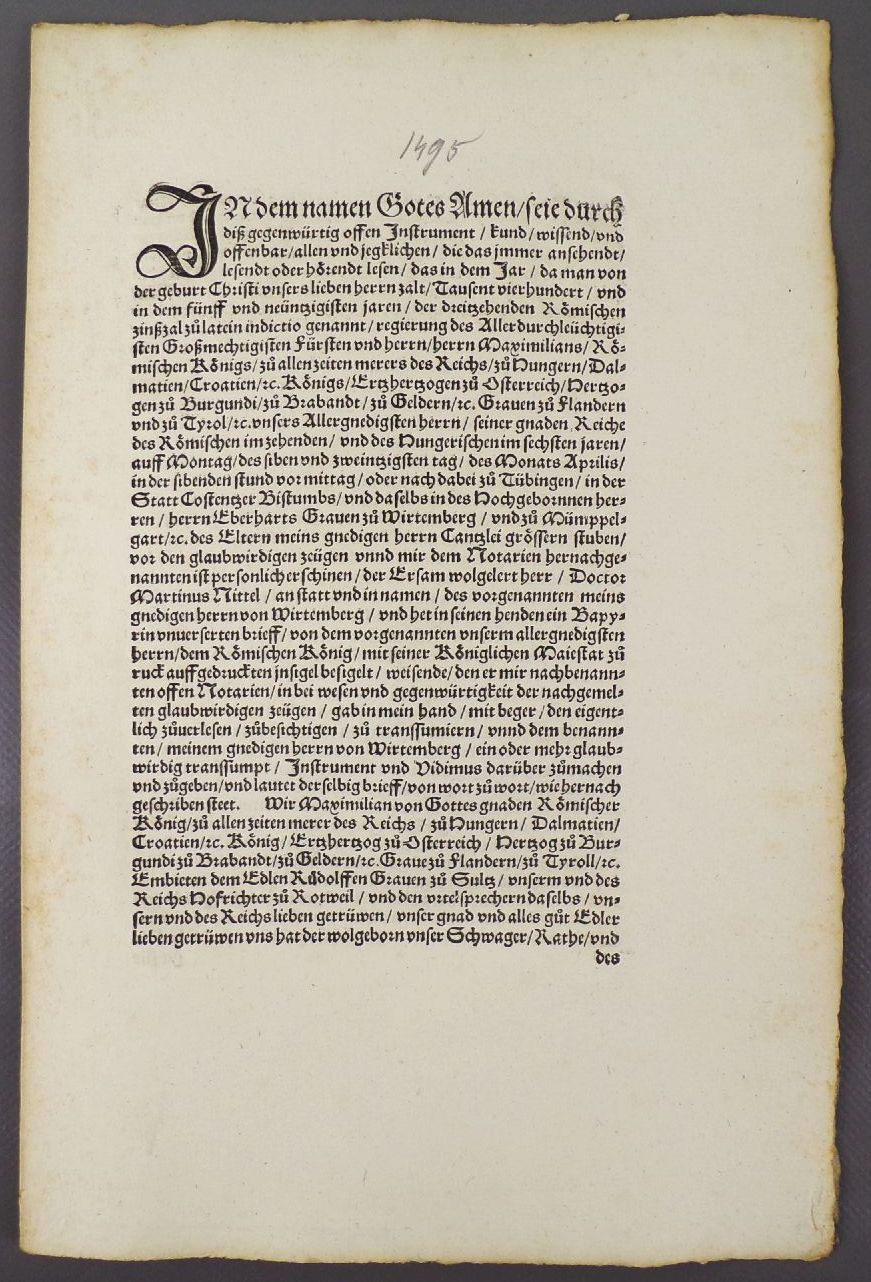 1495
IN dem namen Gotes Amen/seie durch
diß gegenwürtig offen Instrument / kund/wissend/vnd
offenbar/allen vnd jegklichen / die das jmmer ansehendt/
lesendt oder hörendt lesen/ das in dem Jar / da man von
der geburt Christi vnsers lieben herrn zalt/Tausent vierhundert / vnd
in dem fünff vnd neüntzigisten jaren / der dreitzehenden Römischen
zinßzal zů latein indictio genannt/regierung des Allerdurchleüchtigi⸗
sten Großmechtigisten Fürsten vnd herrn/herrn Maximilians/ Rö⸗
mischen Königs/zů allen zeiten merers des Reichs/zů Hungern/Dal⸗
matien/Croatien/ꝛc. Königs/Ertzhertzogen zů Osterreich/Hertzo⸗
gen zů Burgundi/zů Brabandt/zů Geldern/ꝛc. Grauen zů Flandern
vnd zů Tyrol/ꝛc.vnsers Allergnedigsten herrn/ seiner gnaden Reiche
des Römischen im zehenden/ vnd des Hungerischen im sechsten jaren/
auff Montag/des siben vnd zweintzigsten tag/ des Monats Aprilis/
in der sibenden stund vor mittag/oder nach dabei zů Tübingen/in der
Statt Costentzer Bistumbs/vnd daselbs in des Hochgebornnen her⸗
ren / herrn Eberharts Grauen zů Wirtemberg / vnd zů Mümppel⸗
gart/ꝛc. des Eltern meins gnedigen herrn Cantzlei grössern stuben/
vor den glaubwirdigen zeügen vnnd mir dem Notarien hernachge⸗
nannten ist personlich erschinen / der Ersam wolgelert herr / Doctor
Martinus Nittel / an statt vnd in namen / des vorgenannten meins
gnedigen herrn von Wirtemberg / vnd het in seinen henden ein Bapy⸗
rin vnuerserten brieff/von dem vorgenannten vnserm allergnedigsten
herrn/dem Römischen König/mit seiner Königlichen Maiestat zů
ruck auffgedruckten jnsigel besigelt / weisende/den er mir nachbenann⸗
ten offen Notarien/in bei wesen vnd gegenwürtigkeit der nachgemel⸗
ten glaubwirdigen zeügen / gab in mein hand / mit beger/den eigent⸗
lich zůuerlesen / zůbesichtigen / zů transsumiern / vnnd dem benann⸗
ten/ meinem gnedigen herrn von Wirtemberg / ein oder mehr glaub⸗
wirdig transsumpt / Instrument vnd Vidimus darüber zůmachen
vnd zůgeben/vnd lautet derselbig brieff/von wort zů wort/wie hernach
geschriben steet. Wir Maximilian von Gottes gnaden Römischer
König/zů allen zeiten merer des Reichs / zů Hungern/ Dalmatien/
Croatien/ꝛc. König/ Ertzhertzog zů Osterreich / Hertzog zů Bur⸗
gundi zů Brabandt/zů Geldern/ꝛc. Graue zů Flandern/zů Tyroll/ꝛc.
Embieten dem Edlen Růdolffen Grauen zů Sultz / vnserm vnd des
Reichs Hofrichter zů Rotweil / vnd den vrtelsprechern daselbs / vn⸗
sern vnd des Reichs lieben getrüwen / vnser gnad vnd alles gůt Edler
lieben getrüwen vns hat der wolgeborn vnser Schwager/Rathe/vnd
des